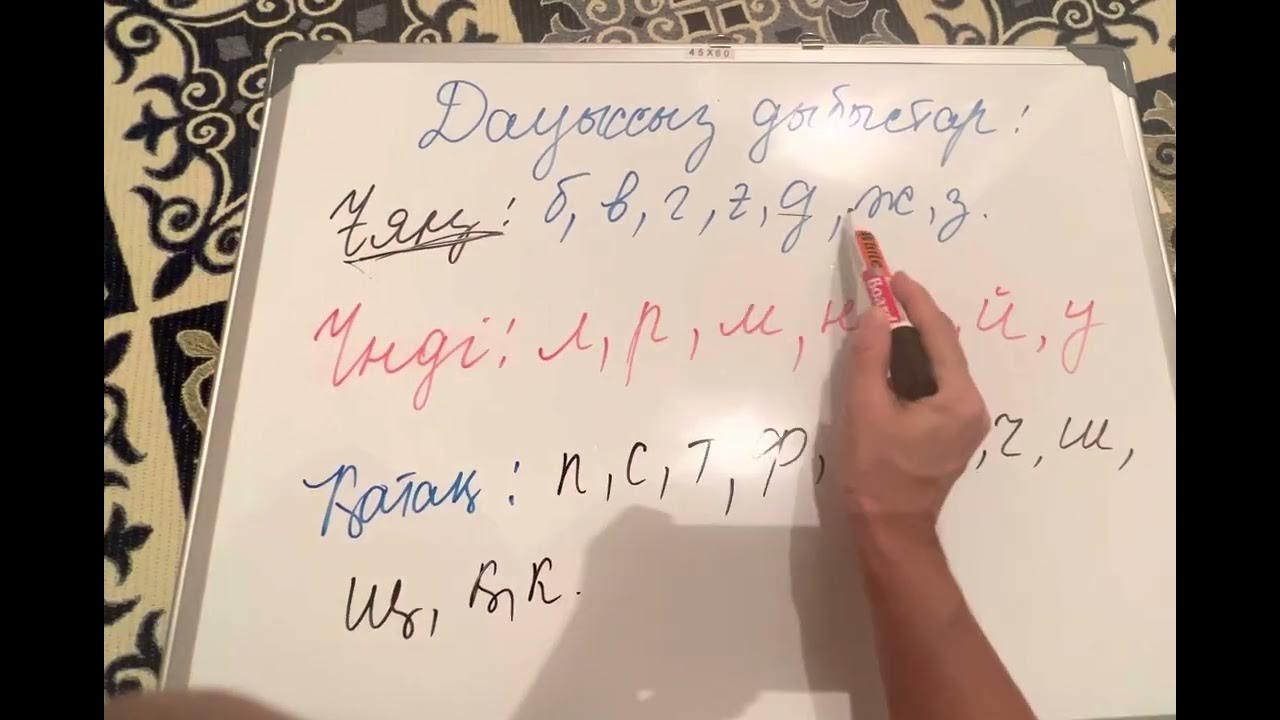 45X60
Дауыссыз дыбыстар:
Ұяң: б, в, г, ғ, д, ж, з.
Үнді: л, р, м, н й, у
Қатаң: п, с, т, ф, ч, ш,
щ, қ, к.